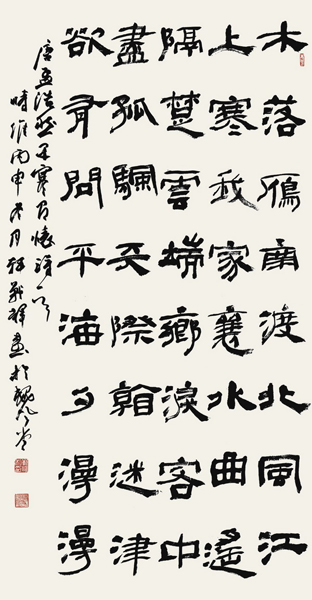 木落鴈南渡北風江
上寒我家襄水曲遙
隔楚雲端鄉淚客中
盡孤颿天際看迷津
欲有問平海夕漫漫
唐孟浩然早寒有懷詩一首
時維丙申冬月書於魏風堂